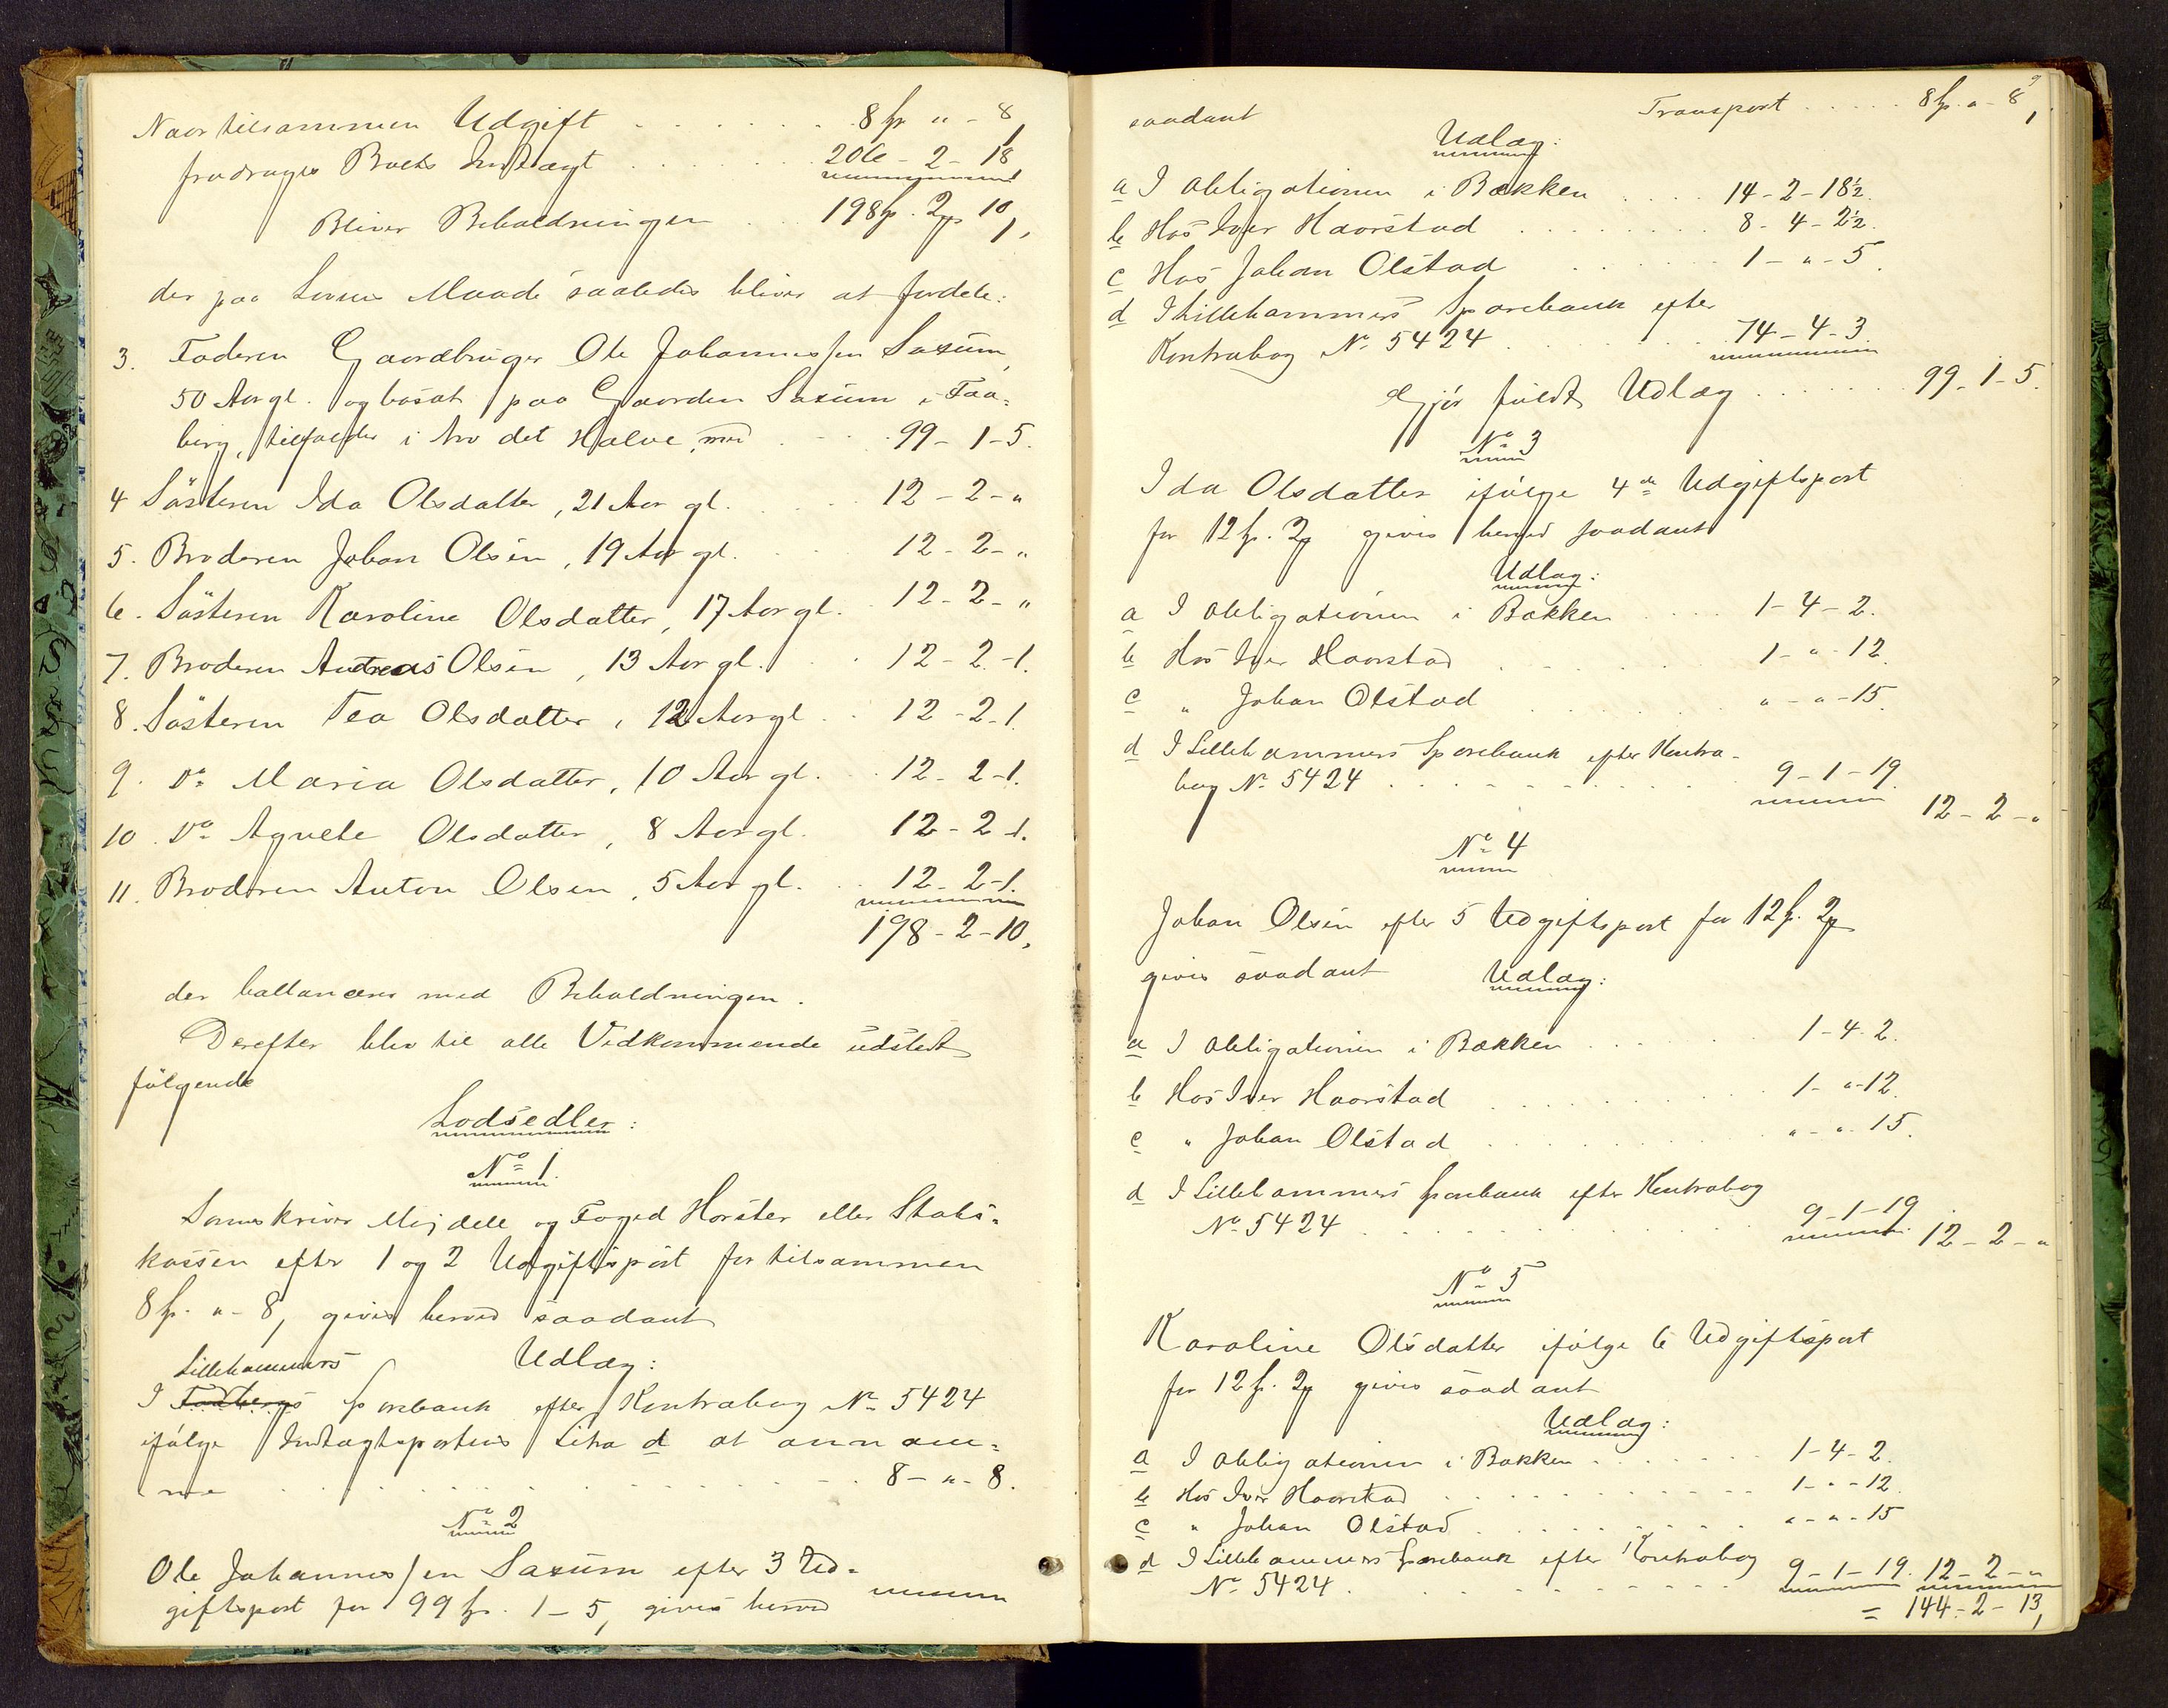 Naar tilsammen Udgift . . . . . . . 8 Sp " - 8,
fradrages Boets Indtægt . . . . . . . 206 - 2 - 18
Bliver Beholdningen . . . 198 Sp. 2 10,
der paa Lovens Maade saaledes bliver at fordele:
3. Faderen Gaardbruger Ole Johannessen Saxum,
50 Aar gl. og bosat paa Gaarden Saxum i Faa=
berg, tilfalder i Arv det Halve med . . . 99 - 1 - 5.
4 Søsteren Ida Olsdatter, 21 Aar gl. . . . 12 - 2 - "
5. Broderen Johan Olsen, 19 Aar gl. . . . 12 - 2 - "
6. Søsteren Karoline Olsdatter, 17 Aar gl. . 12 - 2 - "
7. Broderen Andreas Olsen, 13 Aar gl. . . 12 - 2 - 1.
8. Søsteren Tea Olsdatter, 12 Aar gl . . 12 - 2 - 1
9. Do Maria Olsdatter, 10 Aar gl. . . 12 - 2 - 1.
10. Do Agnete Olsdatter, 8 Aar gl. 12 - 2 - 1.
11. Broderen Anton Olsen, 5 Aar gl. . . 12 - 2 - 1.
198 - 2 - 10,
der ballancerer med Beholdningen.
Derefter blev til alle Vedkommende udstedt
følgende
Lodsedler:
No 1.
Sorenskriver Mejdell og Foged Horster eller Stats=
kassen efter 1 og 2 Udgiftspost for tilsammen
8 Sp. " - 8, gives herved saadant
Udlæg:
Lillehammers
I Faabergs Sparebank efter Kontrabog No 5424
ifølge Indtægtspostens Litra d at annam=
me . . . . . . . . . . . . 8 - " - 8.
No 2
Ole Johannessen Saxum efter 3 Ud=
giftspost for 99 Sp. 1 - 5, gives herved
saadant Transport . . . . . 8 Sp. " - 8,
Udlæg:
a I Obligationen i Bækken . . . . 14 - 2 - 18½.
b Hos Iver Haarstad . . . . . . . . 8 - 4 - 2½.
c Hos Johan Olstad . . . . . . 1 - " - 5.
d I Lillehammers Sparebank efter
Kontrabog No 5424 . . . . . . . 74 - 4 - 3.
Gjør fuldt Udlæg . . . . . . 99 - 1 - 5.
No 3
Ida Olsdatter ifølge 4de Udgiftspost
for 12 Sp. 2 gives herved saadant
Udlæg:
a I Obligationen i Bækken . . . 1 - 4 - 2.
b Hos Iver Haarstad . . . . . . 1 - " - 12.
c " Johan Olstad . . . . . . " - " - 15.
d I Lillehammers Sparebank efter Kontra-
bog No 5424 . . . . . . . . . . 9 - 1 - 19.
12 - 2 - "
No 4
Johan Olsen efter 5 Udgiftspost for 12 Sp. 2
gives saadant Udlæg:
a I Obligationen i Bækken . . . . . . 1 - 4 - 2.
b Hos Iver Haarstad . . . . . . . . . 1 - " - 12.
c " Johan Olstad . . . . . . . . " - " - 15.
d I Lillehammers Sparebank efter Kontrabog
No 5424 . . . . . . . . . . . 9 - 1 - 19. 12 - 2 - "
No 5
Karoline Olsdatter ifølge 6 Udgiftspost
for 12 Sp. 2 gives saadant
Udlæg:
a I Obligationen i Bækken . . . . . . . 1 - 4 - 2.
b Hos Iver Haarstad . . . . . . . . . . . . 1 - " - 12
c " Johan Olstad . . . . . . . . . " - " - 15
d I Lillehammers Sparebank efter Kontrabog
No 5424 . . . . . . . . . . 9 - 1 - 19. 12 - 2 - "
= 144 - 2 - 13,